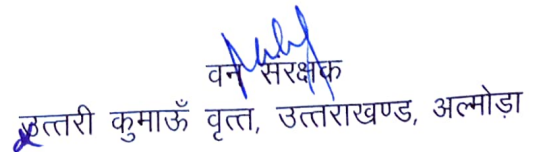 वन सरक्षक
उत्तरी कुमाऊँ वृत्त, उत्तराखण्ड, अल्मोड़ा